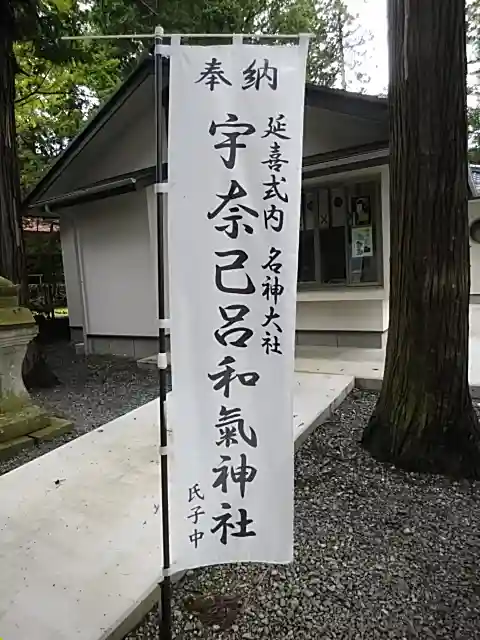 奉納
延喜式内 名神大社
宇奈己呂和氣神社
氏子中